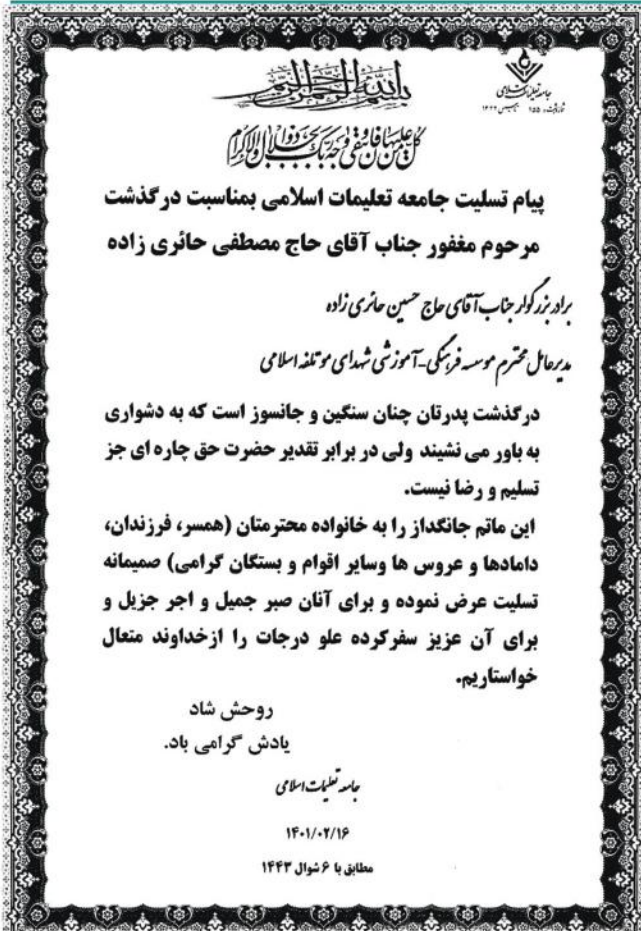 بسم الله الرحمن الرحیم
جامعه تعلیمات اسلامی
شماره ثبت: ۱۵۵ تاسیس ۱۳۲۲
کل من علیها فان و یبقی وجه ربک ذوالجلال والاکرام
پیام تسلیت جامعه تعلیمات اسلامی بمناسبت درگذشت
مرحوم مغفور جناب آقای حاج مصطفی حائری زاده
برادر بزرگوار جناب آقای حاج حسین حائری زاده
مدیرعامل محترم موسسه فرهنگی-آموزشی شهدای موتلفه اسلامی
درگذشت پدرتان چنان سنگین و جانسوز است که به دشواری
به باور می نشیند ولی در برابر تقدیر حضرت حق چاره ای جز
تسلیم و رضا نیست.
این ماتم جانگداز را به خانواده محترمتان (همسر، فرزندان،
دامادها و عروس ها وسایر اقوام و بستگان گرامی) صمیمانه
تسلیت عرض نموده و برای آنان صبر جمیل و اجر جزیل و
برای آن عزیز سفرکرده علو درجات را ازخداوند متعال
خواستاریم.
روحش شاد
یادش گرامی باد.
جامعه تعلیمات اسلامی
۱۴۰۱/۰۲/۱۶
مطابق با ۶ شوال ۱۴۴۳